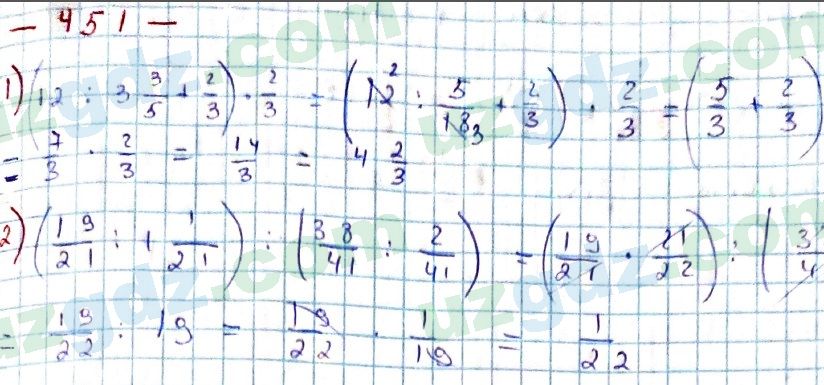 - 451 -
1) (12 : 3 3/5 + 2/3) · 2/3 = (12 2 : 5/18 3 + 2/3) · 2/3 = (5/3 + 2/3)
= 7/3 · 2/3 = 14/3 = 4 2/3
2) (19/21 : + 1/21) : (38/41 : 2/41) = (19/21 · 21/22) : (3/4
= 19/22 : 19 = 19/22 · 1/19 = 1/22
uzgdz.com